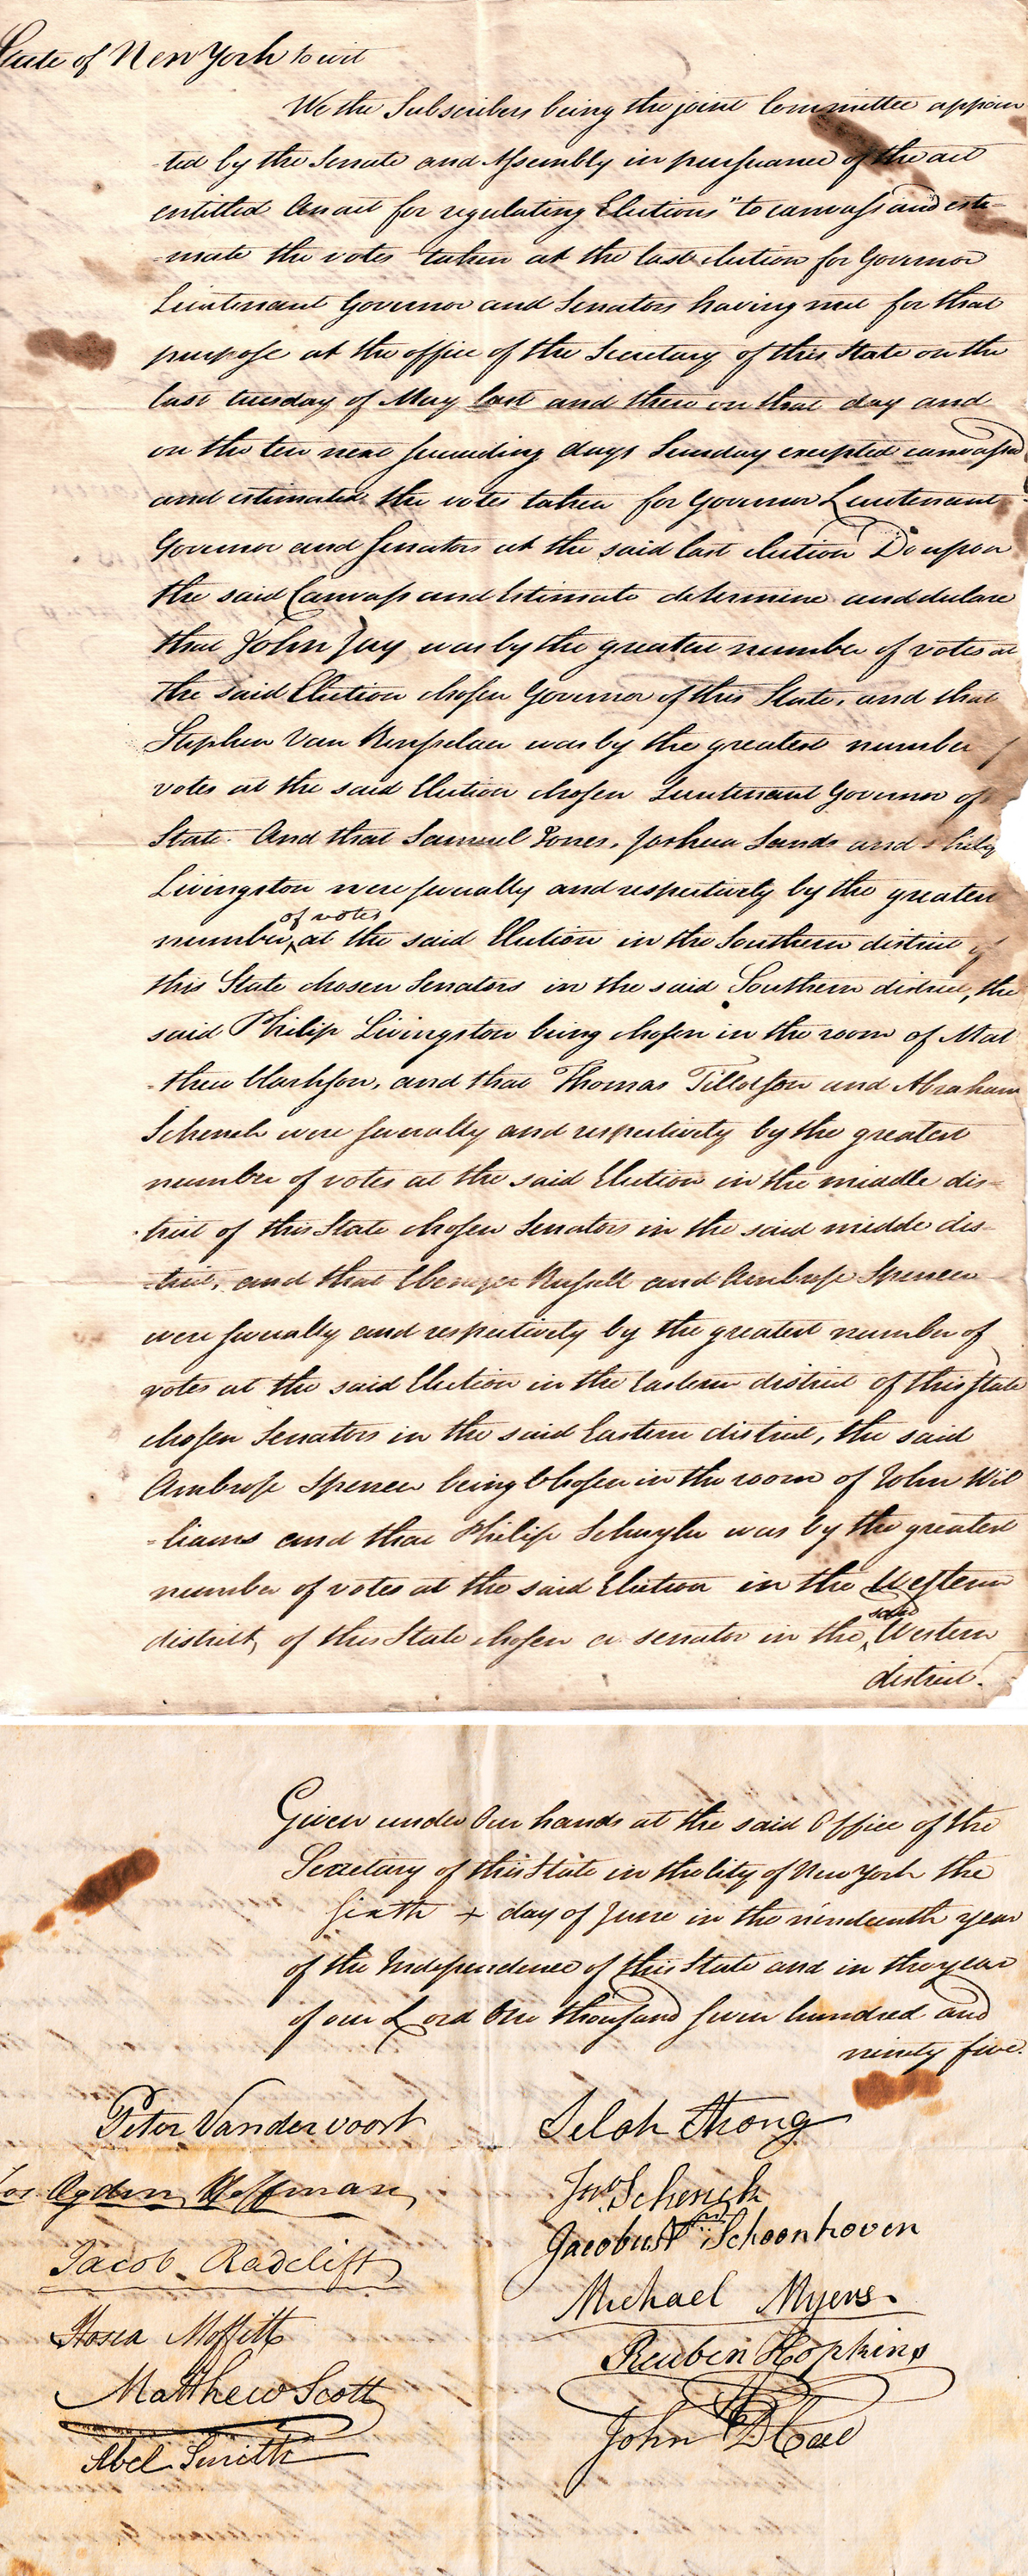 State of New York to wit
We the Subscribers being the joint Committee appoin
ted by the Senate and Assembly in pursuance of the act
entitled An act for regulating Elections" to canvass and esti-
-mate the votes taken at the last election for Governor
Lieutenant Governor and Senators having met for that
purpose at the office of the Secretary of this State on the
last tuesday of May last and there on that day and
on the ten next succeeding days Sunday excepted canvassed
and estimated the votes taken for Governor Lieutenant
Governor and Senators at the said last election Do upon
the said Canvass and Estimate determine and declare
that John Jay was by the greatest number of votes at
the said Election chosen Governor of this State, and that
Stephen Van Rensselaer was by the greatest number
votes at the said Election chosen Lieutenant Governor of
State. And that Samuel Jones, Joshua Sands and Philip
Livingston were severally and respectively by the greatest
of votes
number at the said Election in the Southern district of
this State chosen Senators in the said Southern district, the
said Philip Livingston being chosen in the room of Mat
-thew Clarkson, and that Thomas Tillotson and Abraham
Schenck were severally and respectively by the greatest
number of votes at the said Election in the middle dis-
-trict of this State chosen Senators in the said middle dis-
-trict, and that Ebenezer Russell and Ambrose Spencer
were severally and respectively by the greatest number of
votes at the said Election in the Eastern district of this State
chosen Senators in the said Eastern district, the said
Ambrose Spencer being Chosen in the room of John Wil
-liams and that Philip Schuyler was by the greatest
number of votes at the said Election in the Western
said
district of this State chosen a senator in the Western
district.
Given under Our hands at the said Office of the
Secretary of this State in the City of New York the
Sixth + day of June in the nineteenth year
of the Independence of this State and in the year
of our Lord One thousand seven hundred and
ninety five.
Peter Vandervoort
Selah Strong
Jos Ogden Hoffman
Jno. Schenck
Jacobus Schoonhoven
Jacob Radclift
Michael Myers
Hosea Moffitt
Reuben Hopkins
Matthew Scott
John D Coe
Abel Smith